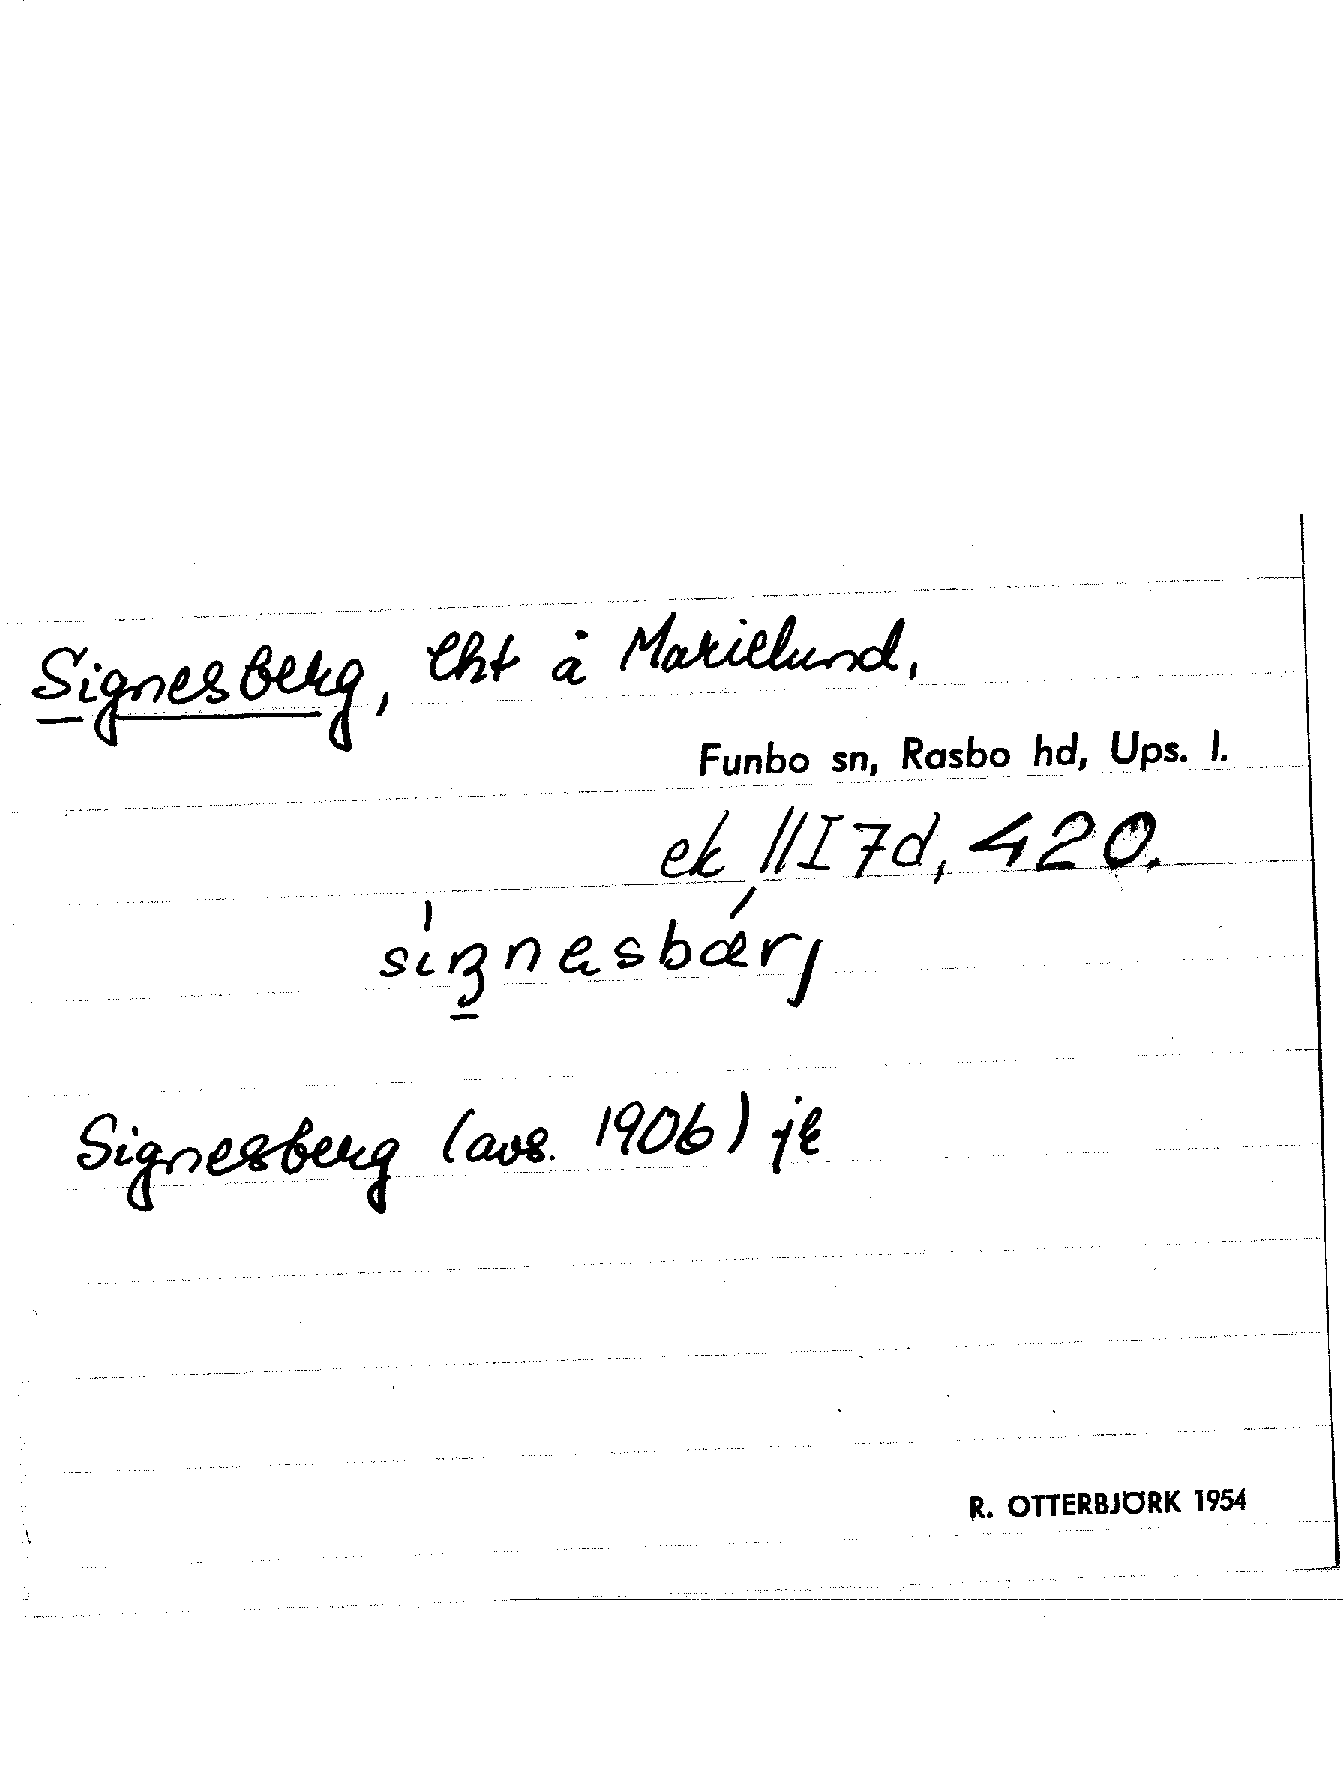 Signesberg, lht å Marielund,
Funbo sn, Rasbo hd, Ups. l.
ek 11I7d, 420.
síŋnesbǽrj
Signesberg (avs. 1906) jk
R. OTTERBJÖRK 1954